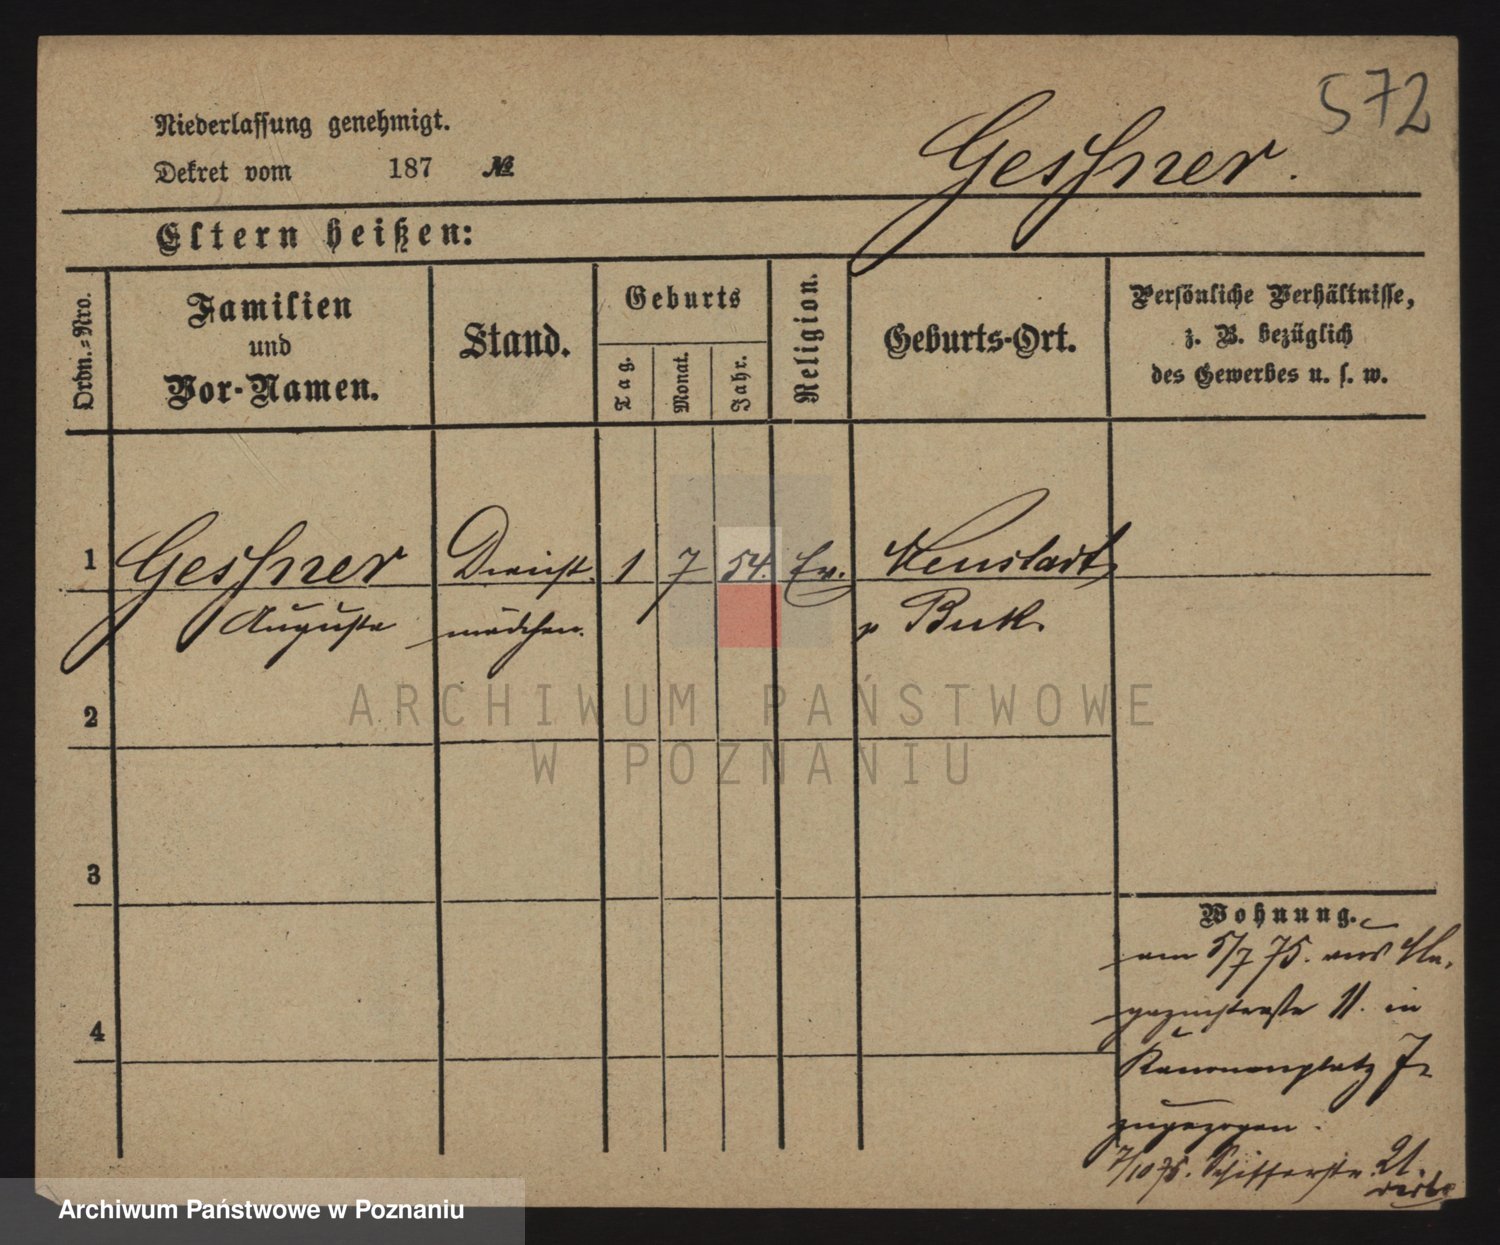 572
Niederlassung genehmigt.
Geßner.
Dekret vom 187 №
Eltern heißen:
Ordn.=Nro.
Familien
und
Vor-Namen.
Stand.
Geburts
Tag.
Monat.
Jahr.
Religion.
Geburts-Ort.
Persönliche Verhältnisse,
z. B. bezüglich
des Gewerbes u. s. w.
1 Geßner Dienst 1 7 54. Ev. Neustadt
Auguste mädchen. Buk.
2
ARCHIWUM PAŃSTWOWE
W POZNANIU
3
4
Wohnung.
am 5/7 75. aus Ma-
gazinstraße 11. in
Kanonenplatz
zugezogen.
7/10 75. Schifferstr. 21.
Archiwum Państwowe w Poznaniu